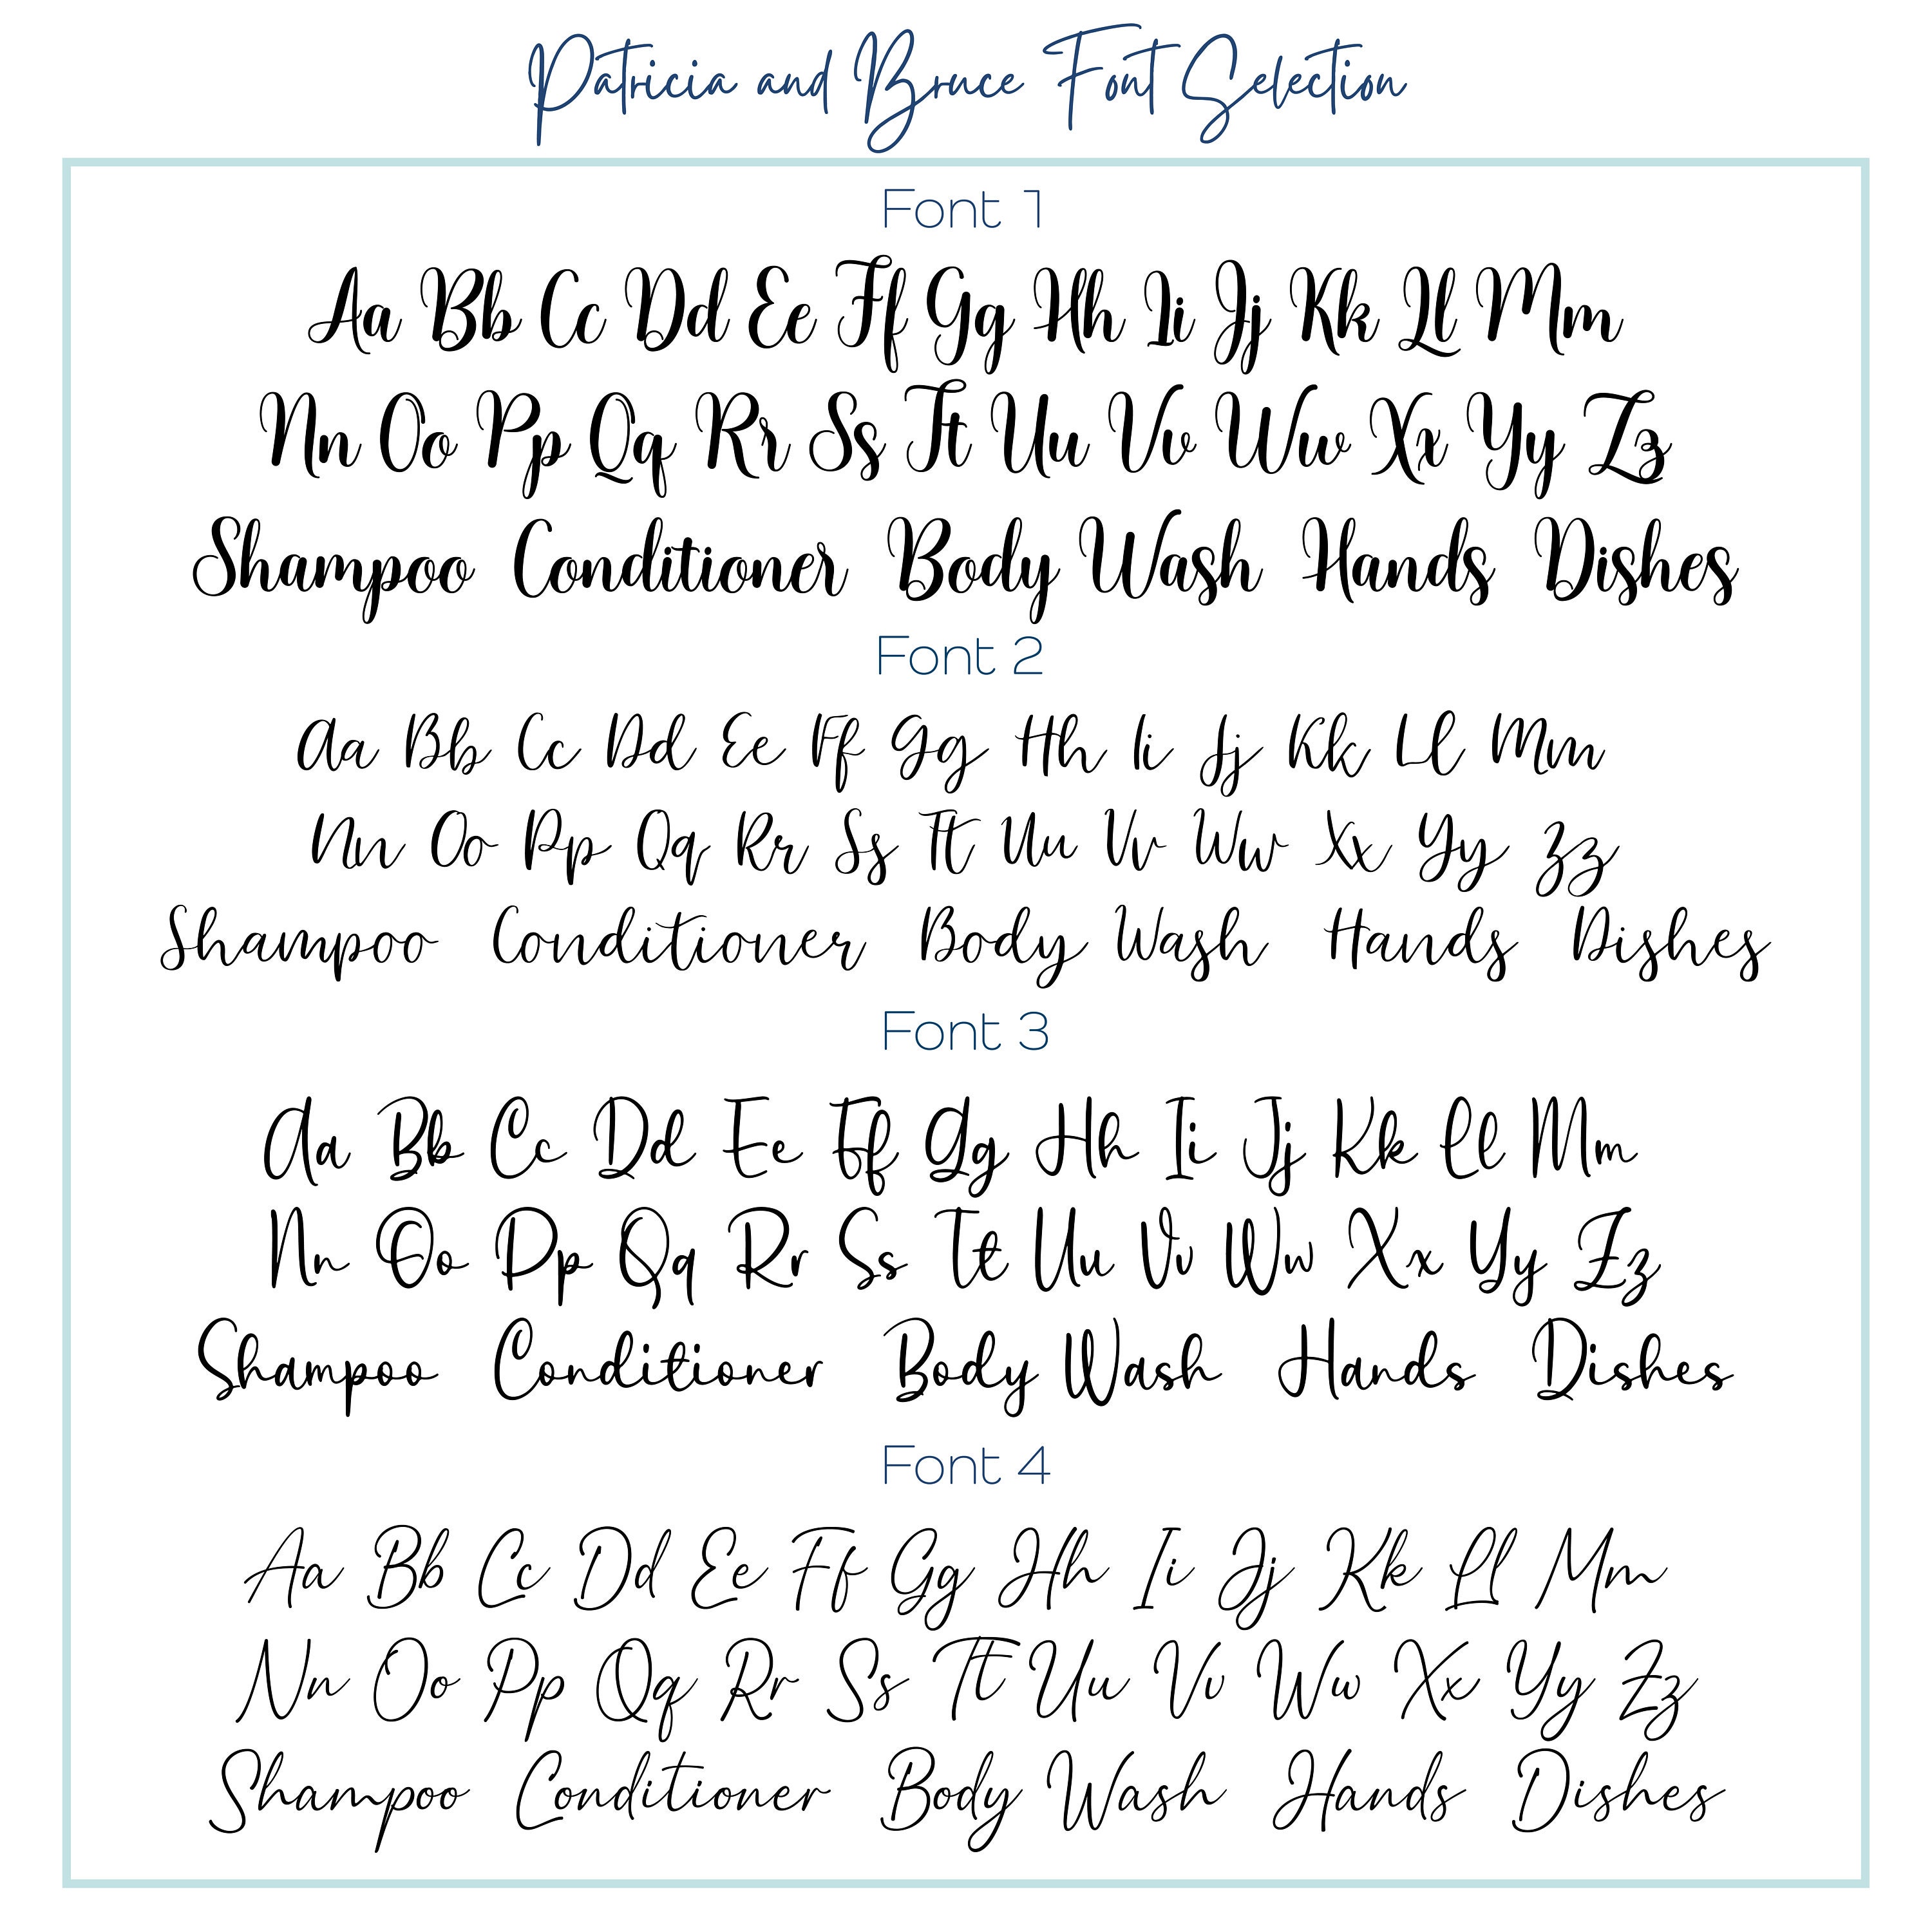 Patricia and Bruce Font Selection
Font 1
Aa Bb Cc Dd Ee Ff Gg Hh Ii Jj Kk Ll Mm
Nn Oo Pp Qq Rr Ss Tt Uu Vv Ww Xx Yy Zz
Shampoo Conditioner Body Wash Hands Dishes
Font 2
Aa Bb Cc Dd Ee Ff Gg Hh Ii Jj Kk Ll Mm
Nn Oo Pp Qq Rr Ss Tt Uu Vv Ww Xx Yy Zz
Shampoo Conditioner Body Wash Hands Dishes
Font 3
Aa Bb Cc Dd Ee Ff Gg Hh Ii Jj Kk Ll Mm
Nn Oo Pp Qq Rr Ss Tt Uu Vv Ww Xx Yy Zz
Shampoo Conditioner Body Wash Hands Dishes
Font 4
Aa Bb Cc Dd Ee Ff Gg Hh Ii Jj Kk Ll Mm
Nn Oo Pp Qq Rr Ss Tt Uu Vv Ww Xx Yy Zz
Shampoo Conditioner Body Wash Hands Dishes